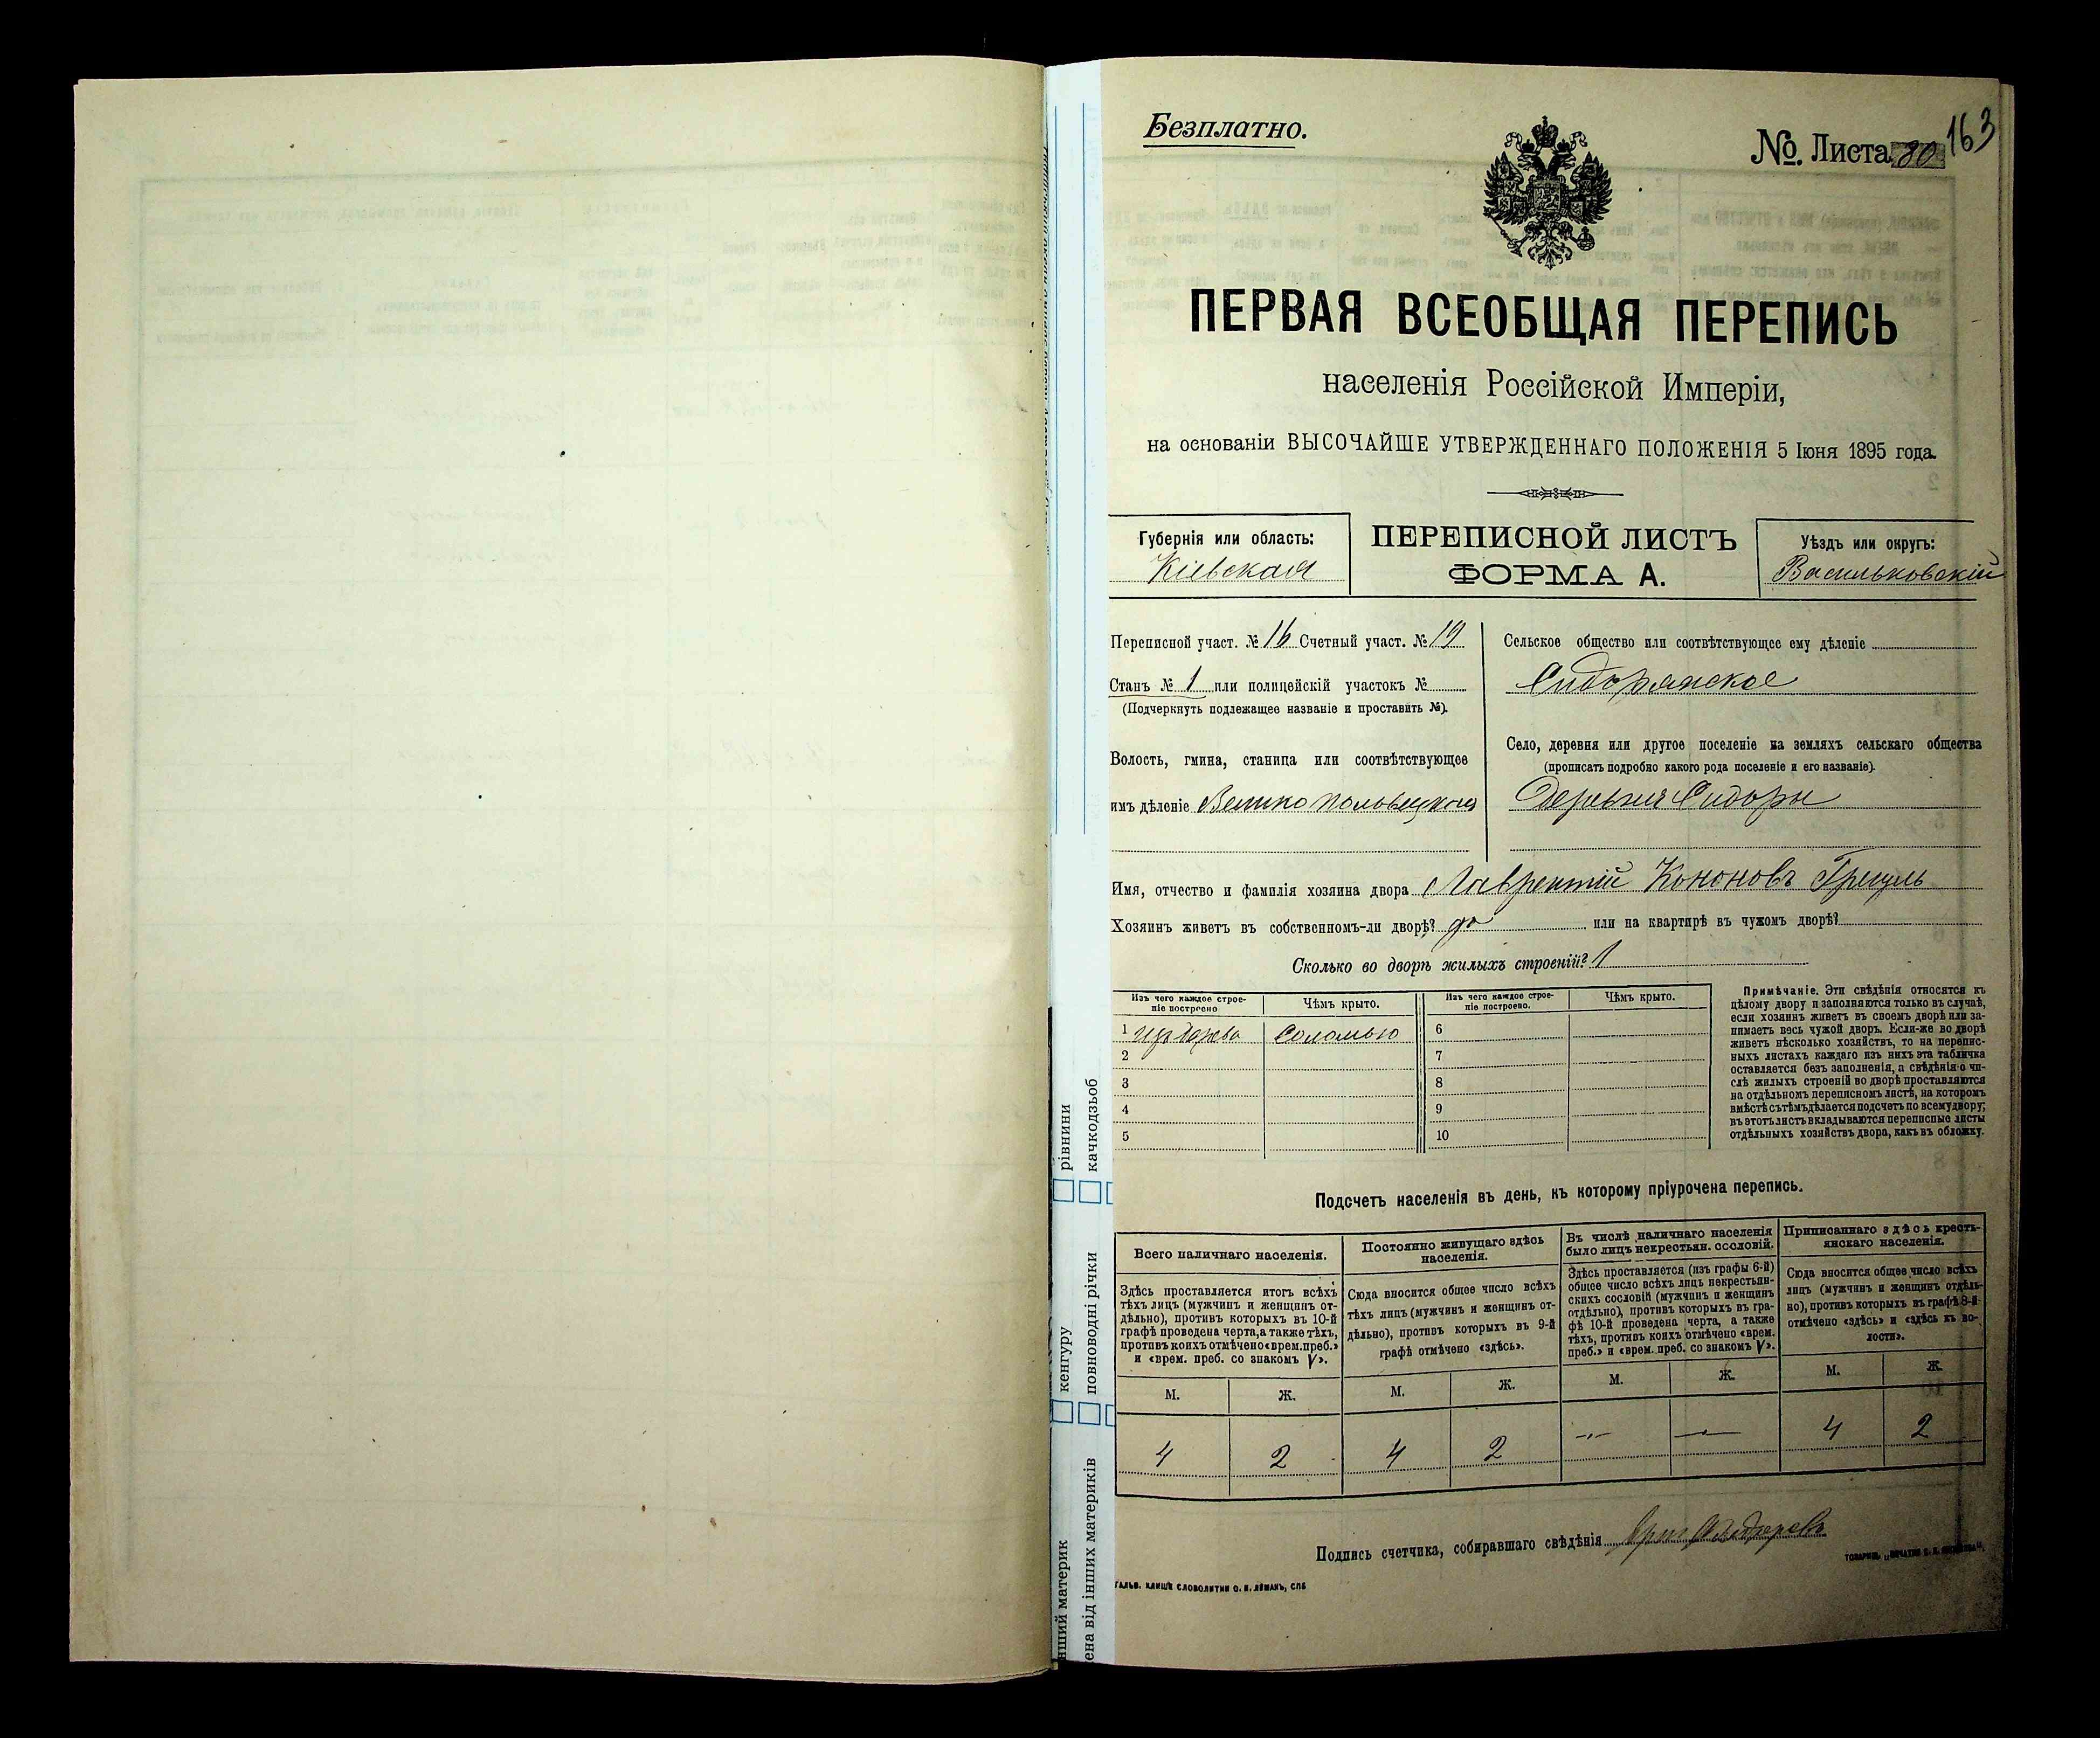 Безплатно.
№. Листа 80
163
ПЕРВАЯ ВСЕОБЩАЯ ПЕРЕПИСЬ
населенія Россійской Имперіи,
на основаніи ВЫСОЧАЙШЕ УТВЕРЖДЕННАГО ПОЛОЖЕНІЯ 5 Іюня 1895 года.
Губернія или область:
Кіевская
ПЕРЕПИСНОЙ ЛИСТЪ
ФОРМА А.
Уѣздъ или округъ:
Васильковскій
Переписной участ. № 16 Счетный участ. № 19
Станъ № 1 или полицейскій участокъ №
(Подчеркнуть подлежащее названіе и проставить №).
Волость, гмина, станица или соотвѣтствующее
имъ дѣленіе Великополовецкая
Сельское общество или соотвѣтствующее ему дѣленіе
Сидорянское
Село, деревня или другое поселеніе на земляхъ сельскаго общества
(прописать подробно какого рода поселеніе и его названіе).
Деревня Сидоры
Имя, отчество и фамилія хозяина двора Лаврентій Кононовъ Грегуль
Хозяинъ живетъ въ собственномъ-ли дворѣ? да или на квартирѣ въ чужомъ дворѣ?
Сколько во дворѣ жилыхъ строеній? 1
Изъ чего каждое строе-
ніе построено
Чѣмъ крыто.
Изъ чего каждое строе-
ніе построено.
Чѣмъ крыто.
1 Соломью 6
2 7
3 8
4 9
5 10
Примѣчаніе. Эти свѣдѣнія относятся къ
цѣлому двору и заполняются только въ случаѣ,
если хозяинъ живетъ въ своемъ дворѣ или за-
нимаетъ весь чужой дворъ. Если-же во дворѣ
живетъ нѣсколько хозяйствъ, то на перепис-
ныхъ листахъ каждаго изъ нихъ эта табличка
оставляется безъ заполненія, а свѣдѣнія о чи-
слѣ жилыхъ строеній во дворѣ проставляются
на отдѣльномъ переписномъ листѣ, на которомъ
вмѣстѣ съ тѣмъ дѣлается подсчетъ по всему двору;
въ этотъ листъ вкладываются переписные листы
отдѣльныхъ хозяйствъ двора, какъ въ обложку.
Подсчетъ населенія въ день, къ которому пріурочена перепись.
Всего наличнаго населенія.
Постоянно живущаго здѣсь
населенія.
Въ числѣ наличнаго населенія
было лицъ некрестьян. сословій.
Приписаннаго здѣсь кресть-
янскаго населенія.
Здѣсь проставляется итогъ всѣхъ
тѣхъ лицъ (мужчинъ и женщинъ от-
дѣльно), противъ которыхъ въ 10-й
графѣ проведена черта, а также тѣхъ,
противъ коихъ отмѣчено «врем. преб.»
и «врем. преб. со знакомъ V».
Сюда вносится общее число всѣхъ
тѣхъ лицъ (мужчинъ и женщинъ от-
дѣльно), противъ которыхъ въ 9-й
графѣ отмѣчено «здѣсь».
Здѣсь проставляется (изъ графы 6-й)
общее число всѣхъ лицъ некрестьян-
скихъ сословій (мужчинъ и женщинъ
отдѣльно), противъ которыхъ въ гра-
фѣ 10-й проведена черта, а также
тѣхъ, противъ коихъ отмѣчено «врем.
преб.» и «врем. преб. со знакомъ V».
Сюда вносится общее число всѣхъ
лицъ (мужчинъ и женщинъ отдѣль-
но), противъ которыхъ въ графѣ 8-й
отмѣчено «здѣсь» и «здѣсь къ во-
лости».
М. Ж. М. Ж. М. Ж. М. Ж.
4 2 4 2 -„- -„- 4 2
Подпись счетчика, собиравшаго свѣдѣнія
ГАЛЬВ. КЛИШЕ СЛОВОЛИТНИ О. И. ЛЕМАНЪ, СПБ
рівнини
качкодзьоб
кенгуру
повноводні річки
нший материк
ена від інших материків